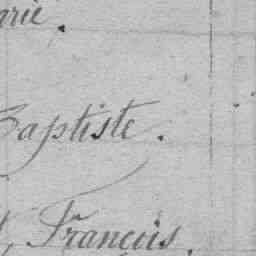 arie.
Baptiste.
François.